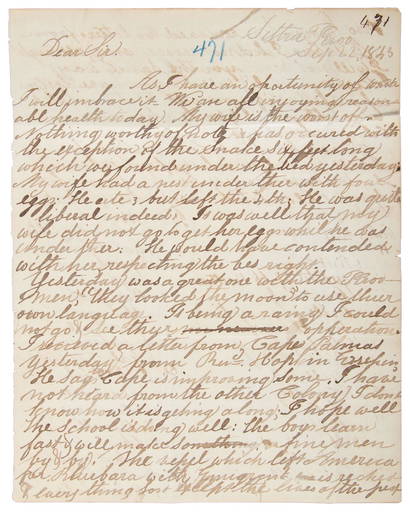 471
Settra Kroo
Sep 22 1843
471
Dear Sir.
As I have an oportunity of
I will imbrace it. We an all injoying reason
able health to day. My wife is the worst of.
Nothing worthy of note has occured with
the exception of the Snake six feet long
which we found under the bed yesterday.
My wife had a nest under ther with four
eggs. He ate 3 but left the 4th; He was quite
liberal indeed. It was well that my
wife did not go to get her eggs while he was
under ther. He would have contended
with her respecting the bes right.
Yesterday was a great one with the Kroo
men, they looked the moon to use their
own langage. It being a rainy I could
not go & see ther opperation.
I received a letter from Cape Palmas
yesterday from Revd.
He say Cape is improving some. I have
not heard from the other Colony I dont
know how it is geting along; I hope well
the school is doing well: the boys learn
fast & will make some fine men
by & by. The vesel which left America
for with Emigrent is recked
& everything lost except the lives of the